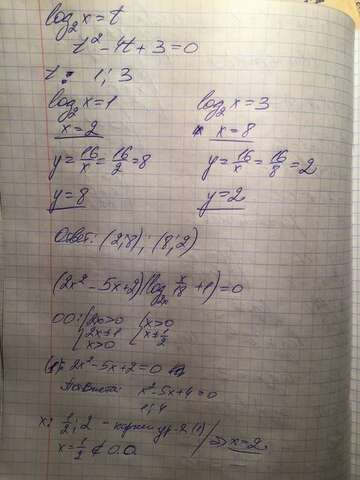 log₂ x = t
t² - 4t + 3 = 0
t = 1; 3
log₂ x = 1 log₂ x = 3
x = 2 x = 8
y = 16/x = 16/2 = 8 y = 16/x = 16/8 = 2
y = 8 y = 2
Ответ: (2;8); (8;2)
(2x² - 5x + 2)(log₂ₓ x/18 + 1) = 0
ОО: {2x > 0 {x > 0
{2x ≠ 1 {x ≠ 1/2
{x > 0
(1): 2x² - 5x + 2 = 0
x² - 5x + 4 = 0
1; 4
x = 1/2; 2 - корни ур-я (1) / ⇒ x = 2
x = 1/2 ∉ О.О.